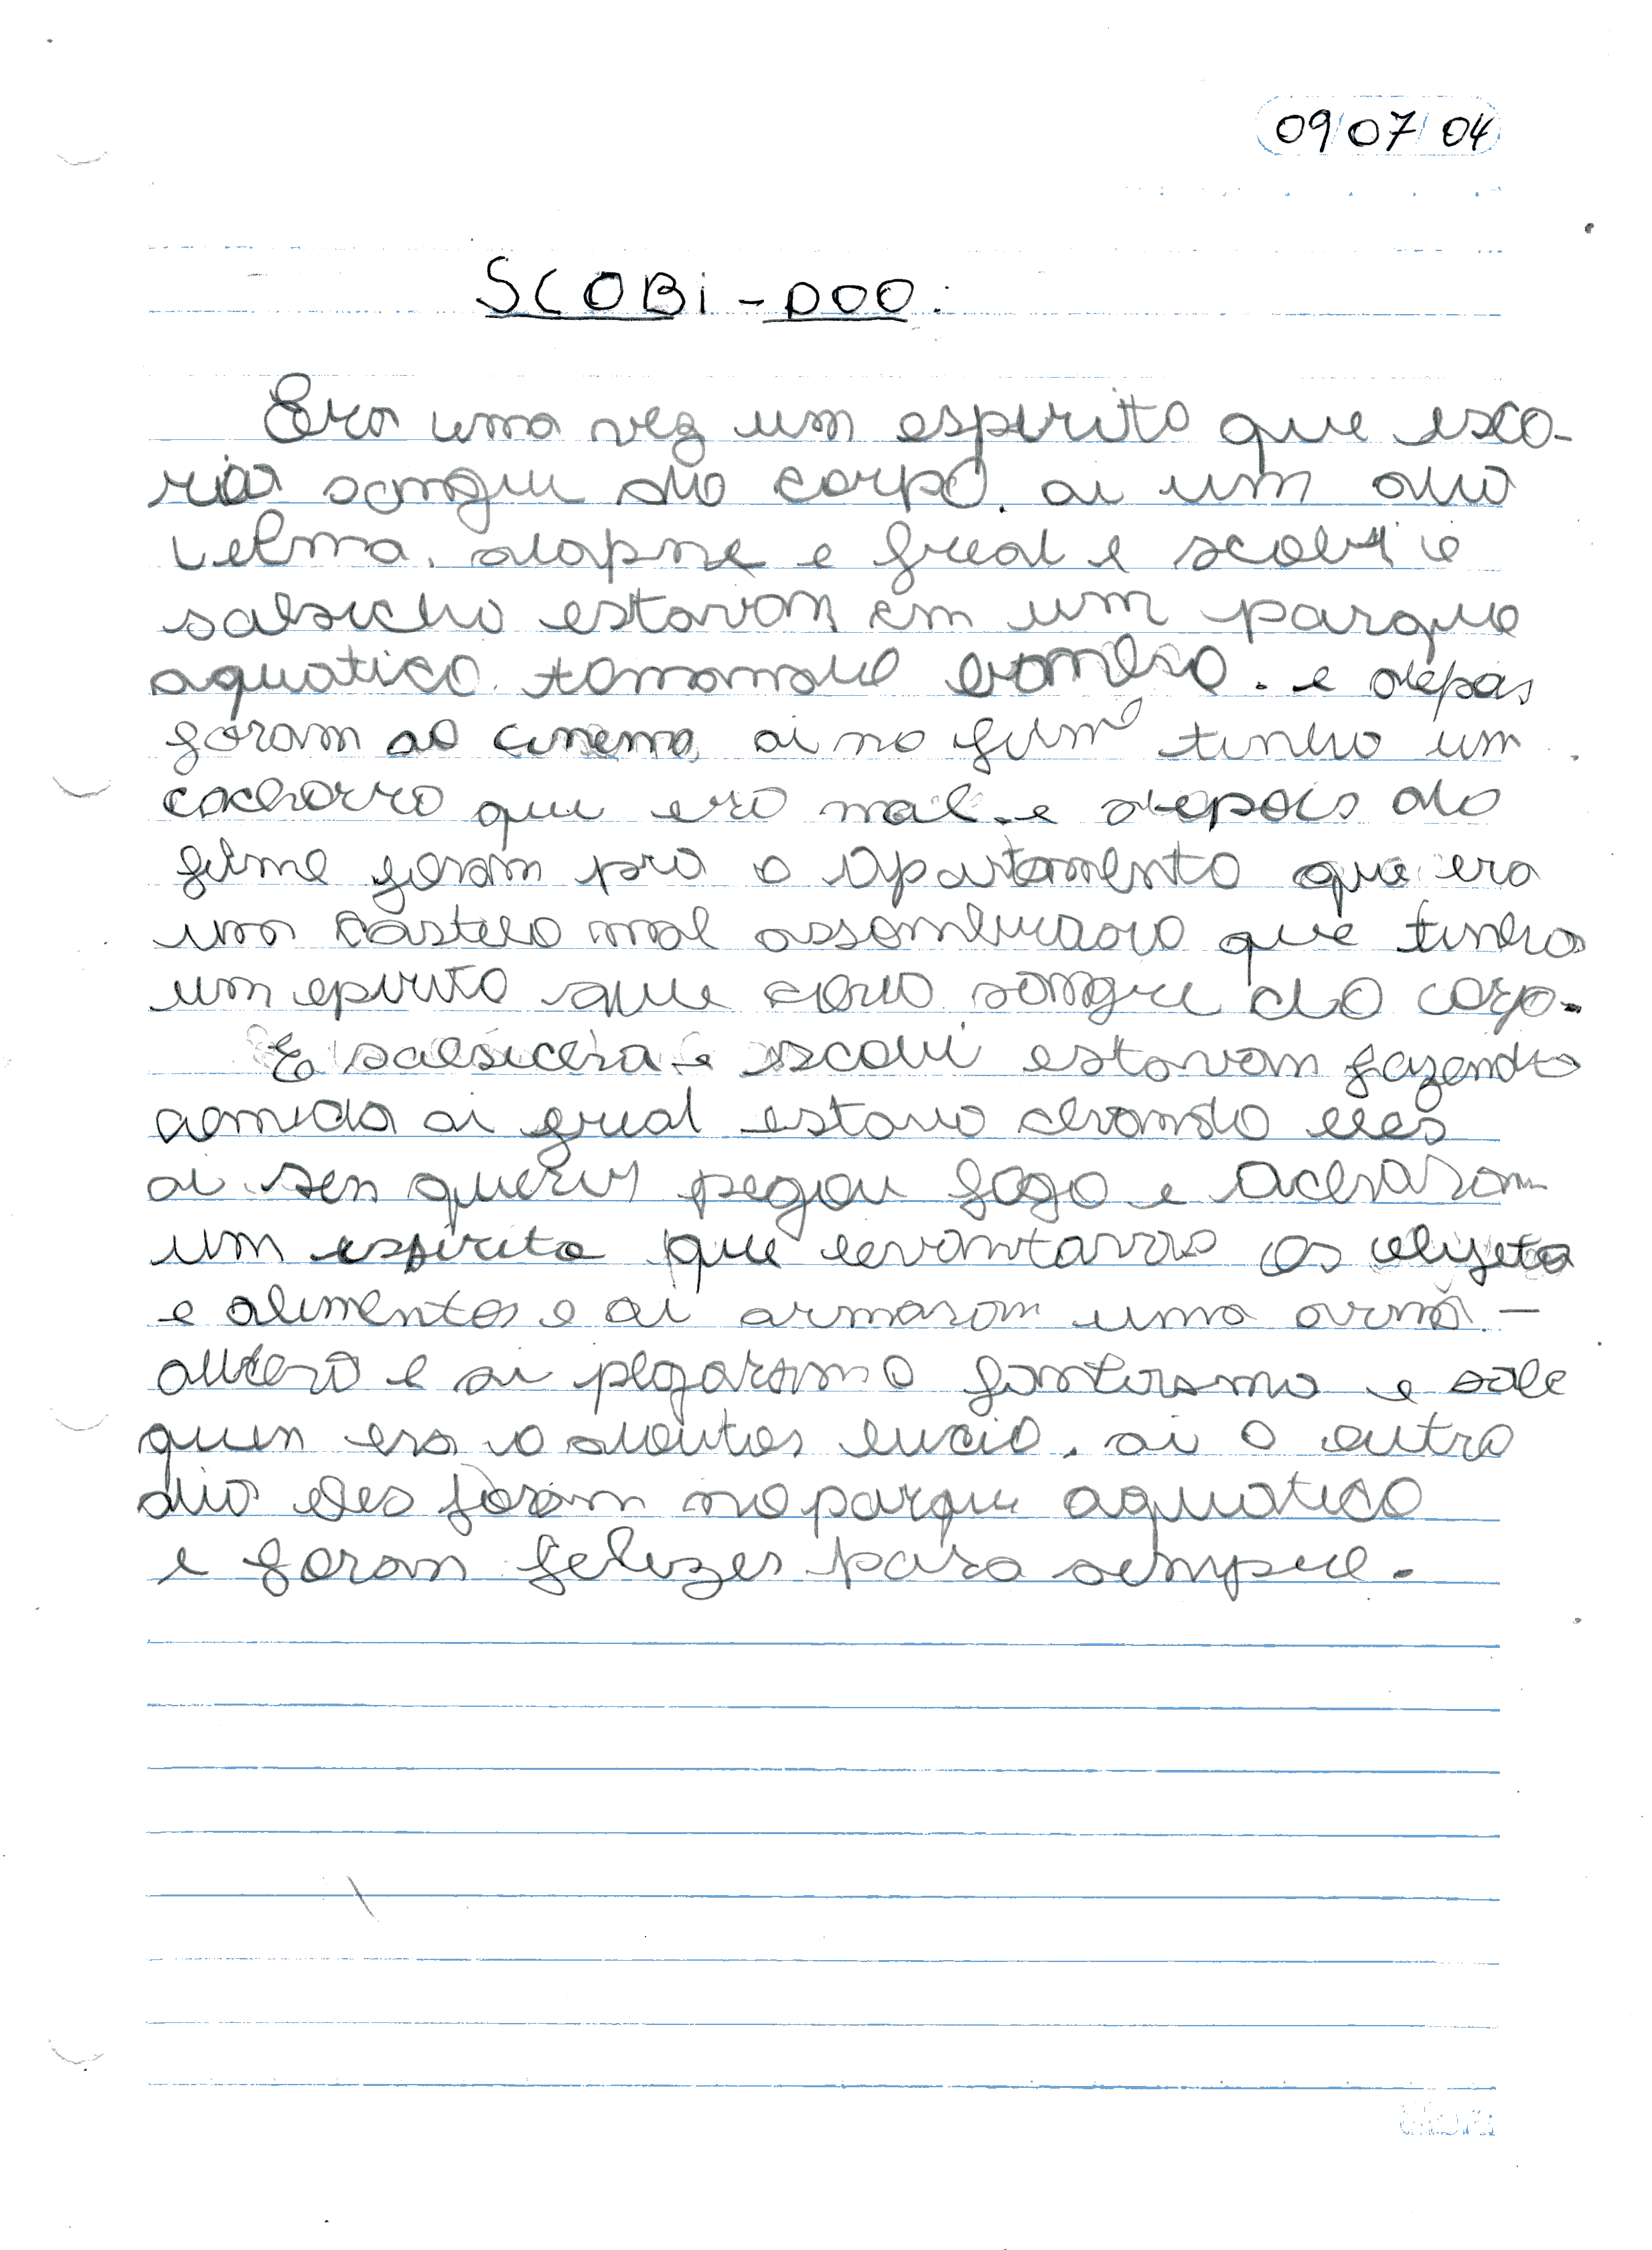 09/07/04
SCOBi-DOO.
Era uma vez um espirito que esco-
ria sangue do corpo. ai um dia
velma. dapne e fread e scobi e
salsicha estavam em um parque
aquatico. tomamdo banhso. e depois
foram ao cinema, ai no filme tinha um
cachorro que era mal. e depois do
filme foram pra o apartamento que era
um castelo mal assombrado que tinha
um epirito que coria sangre do corpo.
E salsicha e iscobi estavam fazendo
comida ai fread estava chamdo eles
ai sen querer pegou fogo e acharam
um espirito que levantava os objetos
e alimentos e ai armaram uma arma-
dilha e ai pegaram o fantasma e sabe
quen era o doutor lucio. ai o outro
dia eles foram no parque aquatico
e foram felizes para sempre.